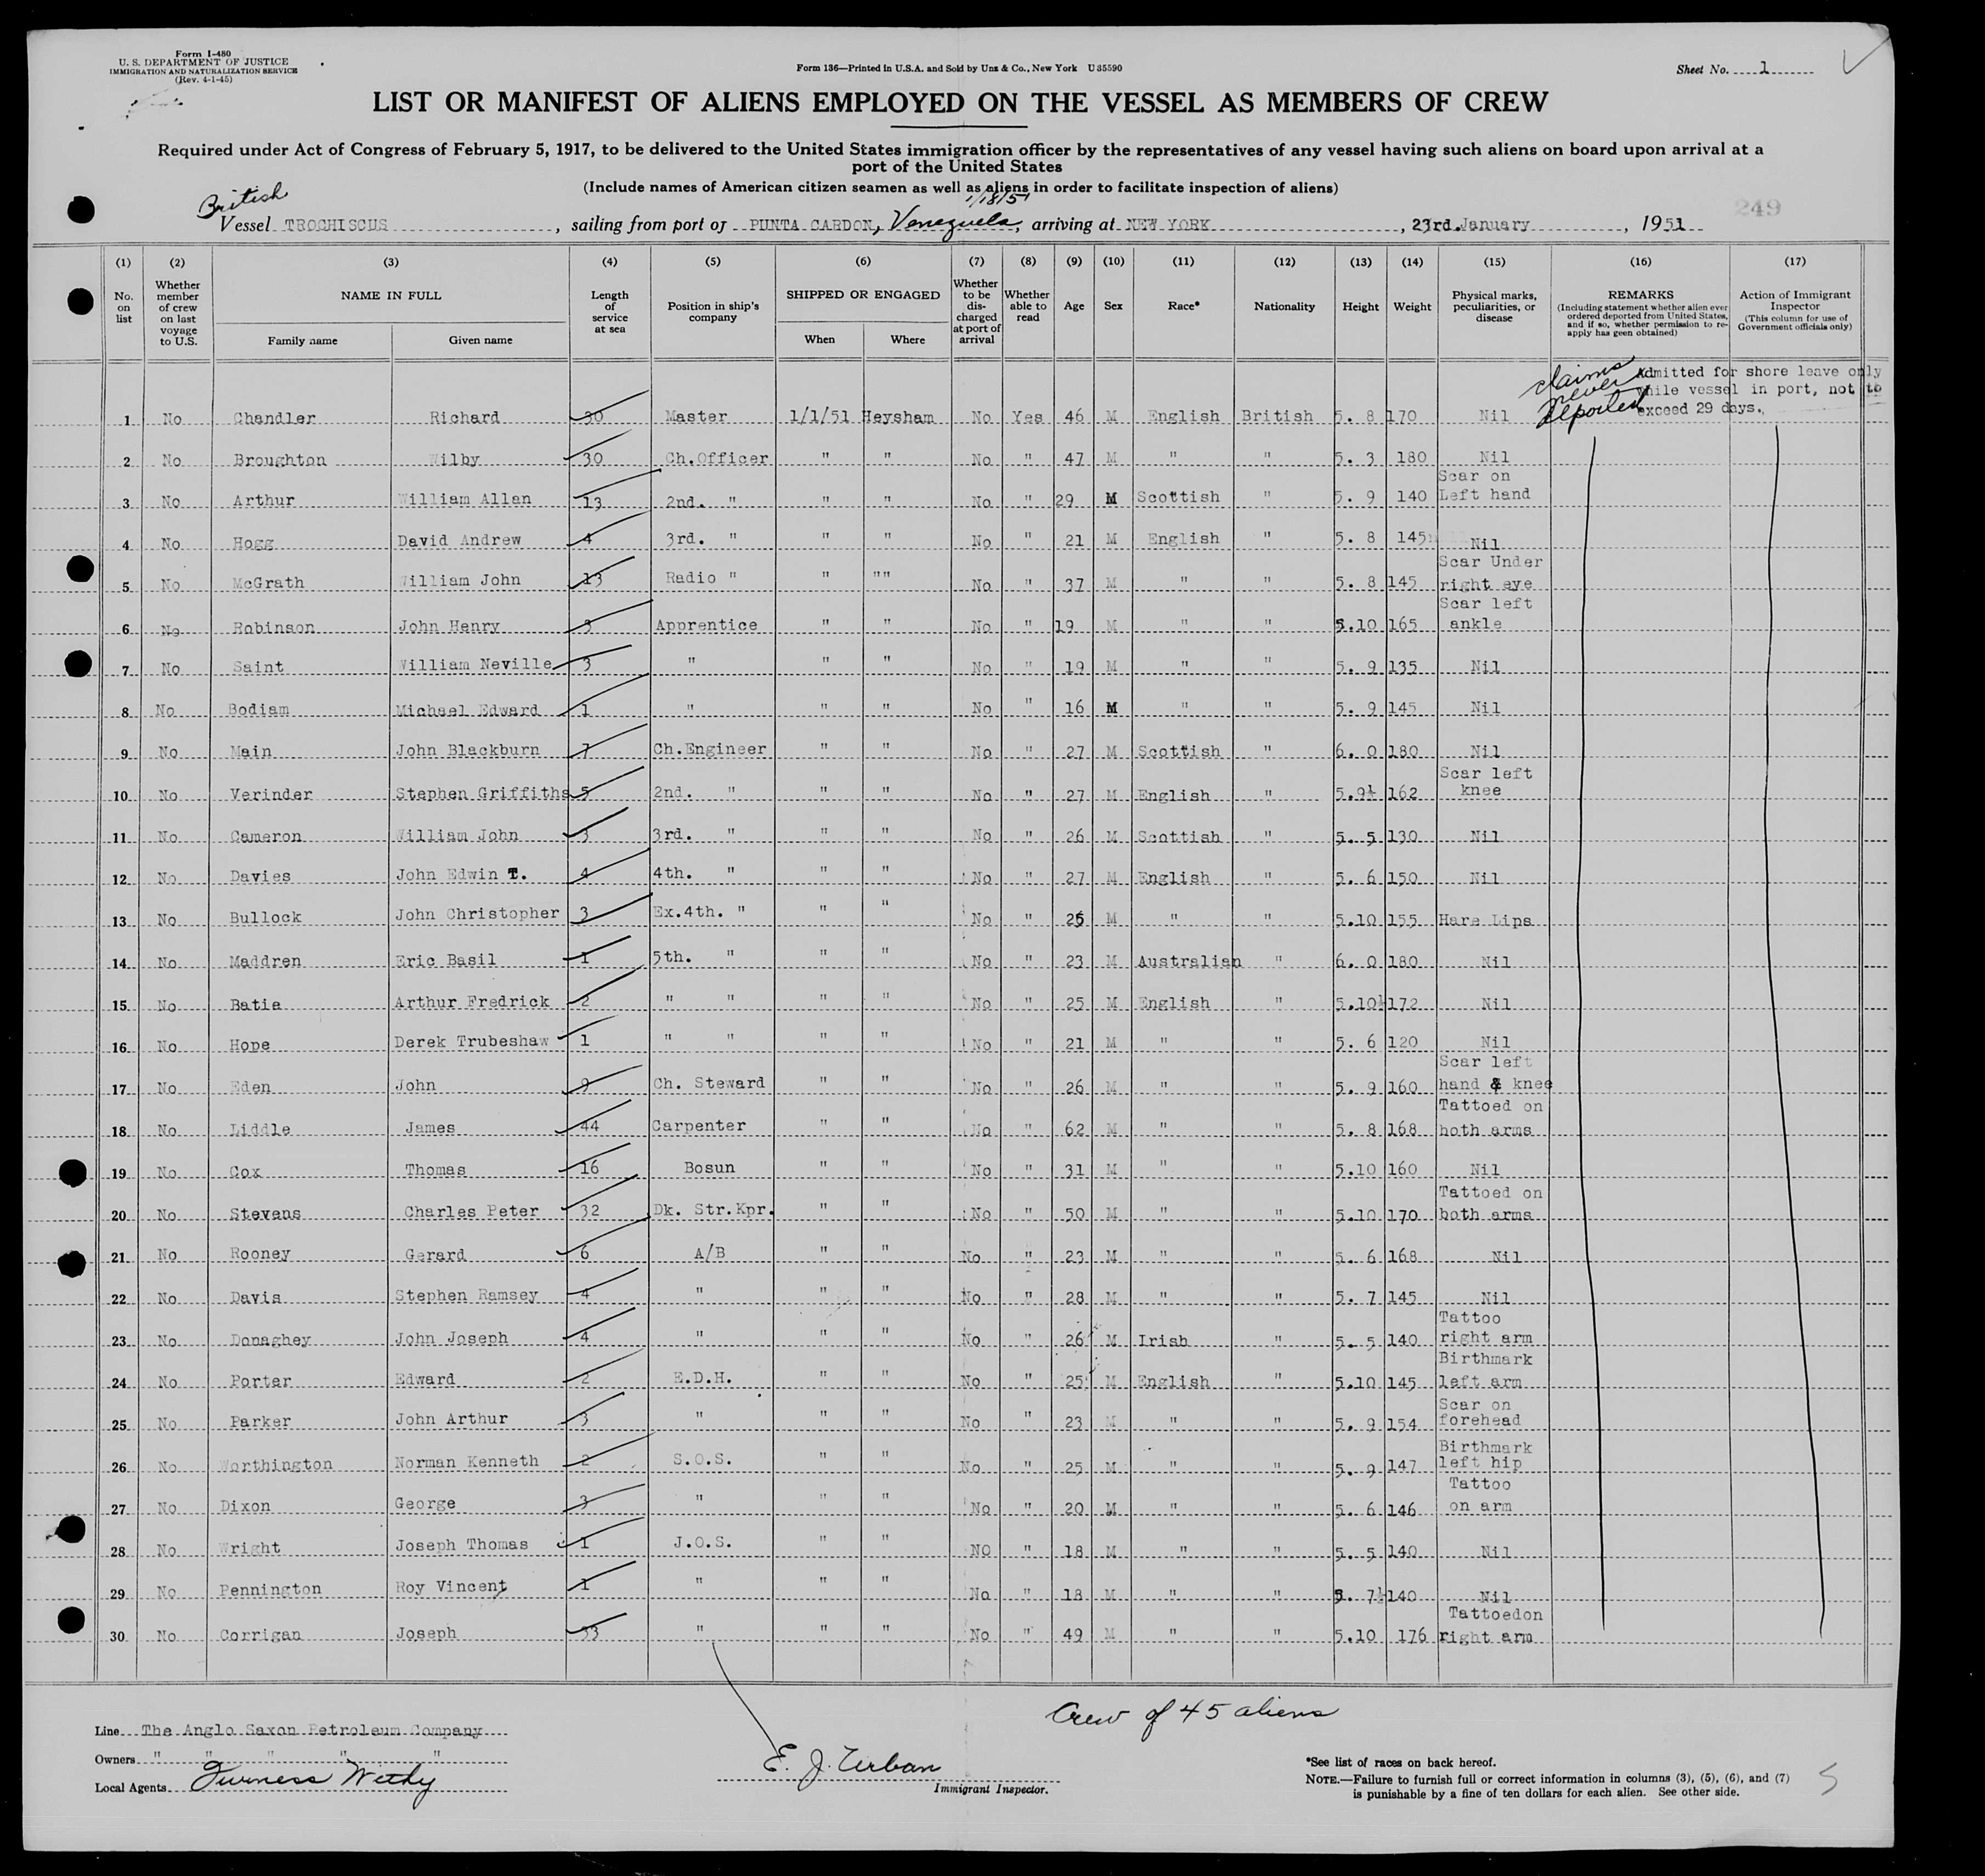 Form I-480
U. S. DEPARTMENT OF JUSTICE
IMMIGRATION AND NATURALIZATION SERVICE
(Rev. 4-1-45)
Form 136—Printed in U.S.A. and Sold by Unz & Co., New York U 35590
Sheet No. 1
LIST OR MANIFEST OF ALIENS EMPLOYED ON THE VESSEL AS MEMBERS OF CREW
Required under Act of Congress of February 5, 1917, to be delivered to the United States immigration officer by the representatives of any vessel having such aliens on board upon arrival at a
port of the United States
(Include names of American citizen seamen as well as aliens in order to facilitate inspection of aliens)
British 1/18/51 249
Vessel TROCHISCUS, sailing from port of PUNTA CARDON, Venezuela, arriving at NEW YORK, 23rd. January, 1951
(1) (2) (3) (4) (5) (6) (7) (8) (9) (10) (11) (12) (13) (14) (15) (16) (17)
No. on list
Whether member of crew on last voyage to U.S.
NAME IN FULL
Family name Given name
Length of service at sea
Position in ship's company
SHIPPED OR ENGAGED
When Where
Whether to be discharged at port of arrival
Whether able to read
Age
Sex
Race*
Nationality
Height
Weight
Physical marks, peculiarities, or disease
REMARKS
(Including statement whether alien ever ordered deported from United States, and if so, whether permission to re-apply has geen obtained)
Action of Immigrant Inspector
(This column for use of Government officials only)
claims never deported
Admitted for shore leave only
while vessel in port, not to
exceed 29 days.
1 No Chandler Richard 30 Master 1/1/51 Heysham No Yes 46 M English British 5. 8 170 Nil
2 No Broughton Wilby 30 Ch.Officer " " No " 47 M " " 5. 3 180 Nil
3 No Arthur William Allan 13 2nd. " " " No " 29 M Scottish " 5. 9 140 Scar on Left hand
4 No Hogg David Andrew 4 3rd. " " " No " 21 M English " 5. 8 145 Nil
5 No McGrath William John 13 Radio " " "" No " 37 M " " 5. 8 145 Scar Under right eye
6 No Robinson John Henry 3 Apprentice " " No " 19 M " " 5.10 165 Scar left ankle
7 No Saint William Neville 3 " " " No " 19 M " " 5. 9 135 Nil
8 No Bodiam Michael Edward 1 " " " No " 16 M " " 5. 9 145 Nil
9 No Main John Blackburn 7 Ch.Engineer " " No " 27 M Scottish " 6. 0 180 Nil
10 No Verinder Stephen Griffiths 5 2nd. " " " No " 27 M English " 5.9½ 162 Scar left knee
11 No Cameron William John 3 3rd. " " " No " 26 M Scottish " 5. 5 130 Nil
12 No Davies John Edwin T. 4 4th. " " " No " 27 M English " 5. 6 150 Nil
13 No Bullock John Christopher 3 Ex.4th. " " " No " 25 M " " 5.10 155 Hare Lips
14 No Maddren Eric Basil 1 5th. " " " No " 23 M Australian " 6. 0 180 Nil
15 No Batie Arthur Fredrick 2 " " " " No " 25 M English " 5.10½ 172 Nil
16 No Hope Derek Trubeshaw 1 " " " " No " 21 M " " 5. 6 120 Nil
17 No Eden John 9 Ch. Steward " " No " 26 M " " 5. 9 160 Scar left hand & knee
18 No Liddle James 44 Carpenter " " No " 62 M " " 5. 8 168 Tattoed on both arms
19 No Cox Thomas 16 Bosun " " No " 31 M " " 5.10 160 Nil
20 No Stevens Charles Peter 32 Dk. Str.Kpr. " " No " 50 M " " 5.10 170 Tattoed on both arms
21 No Rooney Gerard 6 A/B " " No " 23 M " " 5. 6 168 Nil
22 No Davis Stephen Ramsey 4 " " " No " 28 M " " 5. 7 145 Nil
23 No Donaghey John Joseph 4 " " " No " 26 M Irish " 5. 5 140 Tattoo right arm
24 No Porter Edward 2 E.D.H. " " No " 25 M English " 5.10 145 Birthmark left arm
25 No Parker John Arthur 3 " " " No " 23 M " " 5. 9 154 Scar on forehead
26 No Worthington Norman Kenneth 2 S.O.S. " " No " 25 M " " 5. 9 147 Birthmark left hip
27 No Dixon George 3 " " " No " 20 M " " 5. 6 146 Tattoo on arm
28 No Wright Joseph Thomas 1 J.O.S. " " NO " 18 M " " 5. 5 140 Nil
29 No Pennington Roy Vincent 1 " " " No " 18 M " " 5. 7½ 140 Nil
30 No Corrigan Joseph 33 " " " No " 49 M " " 5.10 176 Tattoedon right arm
Crew of 45 aliens
Line The Anglo Saxon Petroleum Company
Owners " " " " "
Local Agents Furness Withy
E. J. Urban
Immigrant Inspector.
*See list of races on back hereof.
NOTE.—Failure to furnish full or correct information in columns (3), (5), (6), and (7)
is punishable by a fine of ten dollars for each alien. See other side.